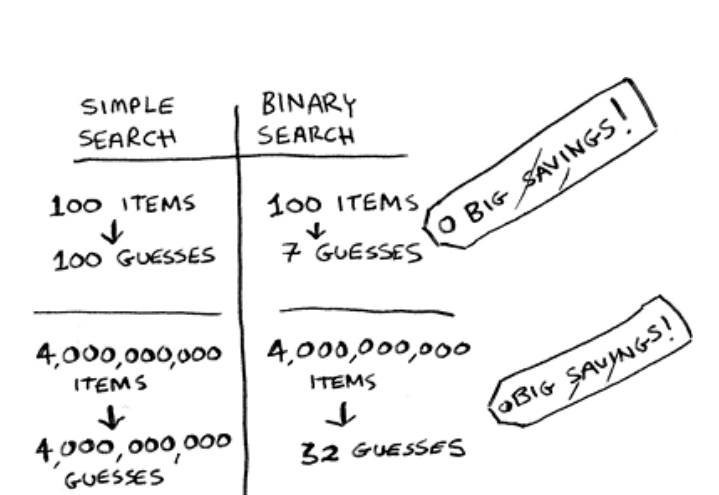 SIMPLE
SEARCH
BINARY
SEARCH
100 ITEMS
↓
100 GUESSES
100 ITEMS
↓
7 GUESSES
BIG SAVINGS!
4,000,000,000
ITEMS
↓
4,000,000,000
GUESSES
4,000,000,000
ITEMS
↓
32 GUESSES
BIG SAVINGS!